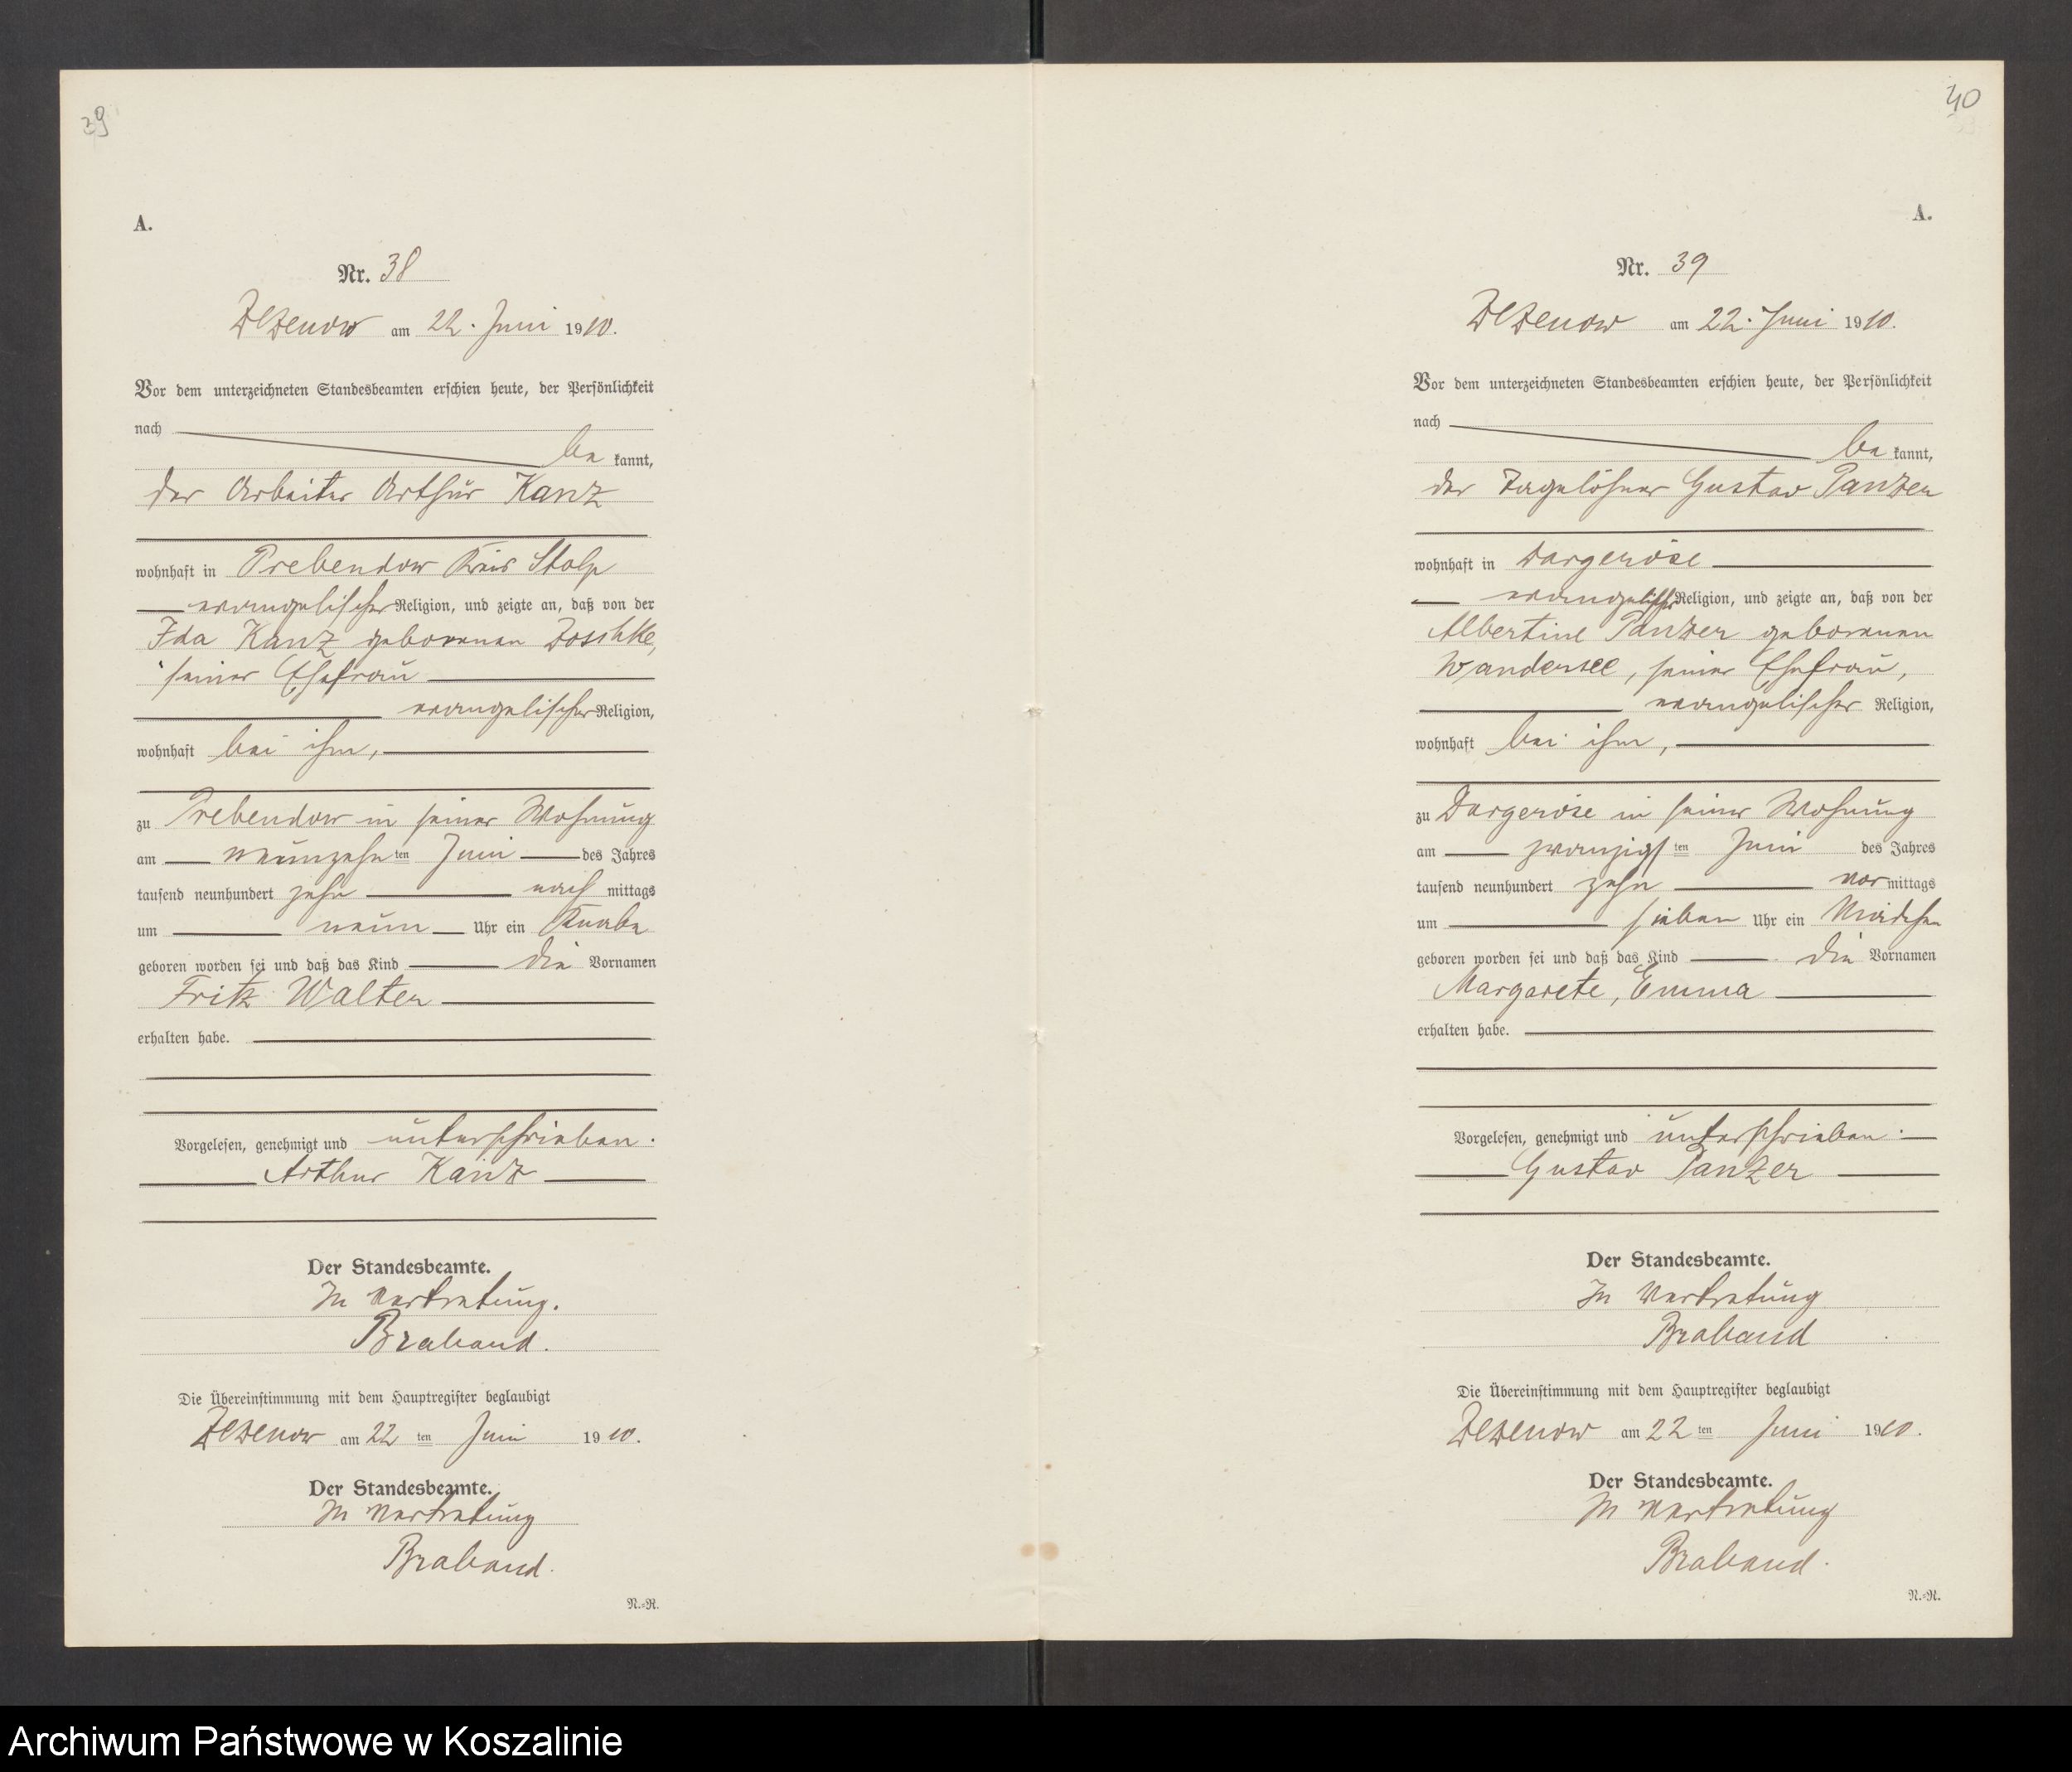 39
A.
Nr. 38
Zezenow am 22. Juni 1910.
Vor dem unterzeichneten Standesbeamten erschien heute, der Persönlichkeit
nach
be kannt,
der Arbeiter Arthur Kanz
wohnhaft in Prebendow Kreis Stolp
evangelischer Religion, und zeigte an, daß von der
Ida Kanz geborenen Zoschke,
seiner Ehefrau
evangelischer Religion,
wohnhaft bei ihm,
zu Prebendow in seiner Wohnung
am neunzehn ten Juni des Jahres
tausend neunhundert zehn nach mittags
um neun Uhr ein Knabe
geboren worden sei und daß das Kind die Vornamen
Fritz Walter
erhalten habe.
Vorgelesen, genehmigt und unterschrieben.
Arthur Kanz
Der Standesbeamte.
In Vertretung.
Braband.
Die Übereinstimmung mit dem Hauptregister beglaubigt
Zezenow am 22 ten Juni 1910.
Der Standesbeamte.
In Vertretung
Braband.
N.=R.
40
A.
Nr. 39
Zezenow am 22. Juni 1910.
Vor dem unterzeichneten Standesbeamten erschien heute, der Persönlichkeit
nach
be kannt,
der Tagelöhner Gustav Panzer
wohnhaft in Dargeröse
evangelischer Religion, und zeigte an, daß von der
Albertine Panzer geborenen
Wandersee, seiner Ehefrau,
evangelischer Religion,
wohnhaft bei ihm,
zu Dargeröse in seiner Wohnung
am zwanzigs ten Juni des Jahres
tausend neunhundert zehn vor mittags
um sieben Uhr ein Mädchen
geboren worden sei und daß das Kind die Vornamen
Margarete, Emma
erhalten habe.
Vorgelesen, genehmigt und unterschrieben.
Gustav Panzer
Der Standesbeamte.
In Vertretung
Braband
Die Übereinstimmung mit dem Hauptregister beglaubigt
Zezenow am 22 ten Juni 1910.
Der Standesbeamte.
In Vertretung
Braband.
N.=R.
Archiwum Państwowe w Koszalinie